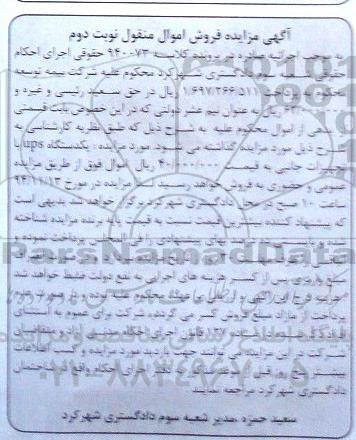 آگهی مزایده فروش اموال منقول نوبت دوم
به موجب اجرائیه صادره در پرونده کلاسه ۹۴۰۰۷۳ حقوقی اجرای احکام
حقوقی شعبه سوم دادگستری شهرکرد محکوم علیه شرکت بیمه توسعه
محکوم به پرداخت ۱.۶۹۷.۲۶۶.۵۱۱ ریال در حق سعید رئیسی و غیره و
ریال به عنوان نیم عشر دولتی که در این خصوص بابت قسمتی
از اموال محکوم علیه به شرح ذیل که طبق نظریه کارشناسی به
شرح ذیل مورد مزایده گذاشته می شود. مورد مزایده : یکدستگاه ups با
تجهیزات جانبی به قیمت ۴۰/۰۰۰/۰۰۰ ریال اموال فوق از طریق مزایده
عمومی و حضوری به فروش خواهد رسید مزایده در مورخ ۹۴/۱۱/۱۳
ساعت ۱۰ صبح در محل دادگستری شهرکرد برگزار خواهد شد بدیهی است
که پیشنهاد کننده قیمت نسبت به قیمت پایه برنده مزایده شناخته
شده و بهای پیشنهادی را فی المجلس پرداخت نموده و
ParsNamadData
پس از کسر هزینه های اجرایی به نفع دولت ضبط خواهد شد
هزینه درج این آگهی و ارزیابی به عهده محکوم علیه بوده و در صورت عدم
پرداخت از مازاد مبلغ فروش کسر می گردد. شرکت برای عموم به استثنای
ماده ۱۲۷ قانون اجرای احکام مدنی آزاد و متقاضیان
شرکت در این مزایده می توانند جهت بازدید مورد مزایده و کسب اطلاعات
بیشتر روز قبل از به دفتر اجرای احکام واقع در ساختمان
دادگستری شهرکرد مراجعه نمایند.
سعید حمزه .مدیر شعبه سوم دادگستری شهرکرد